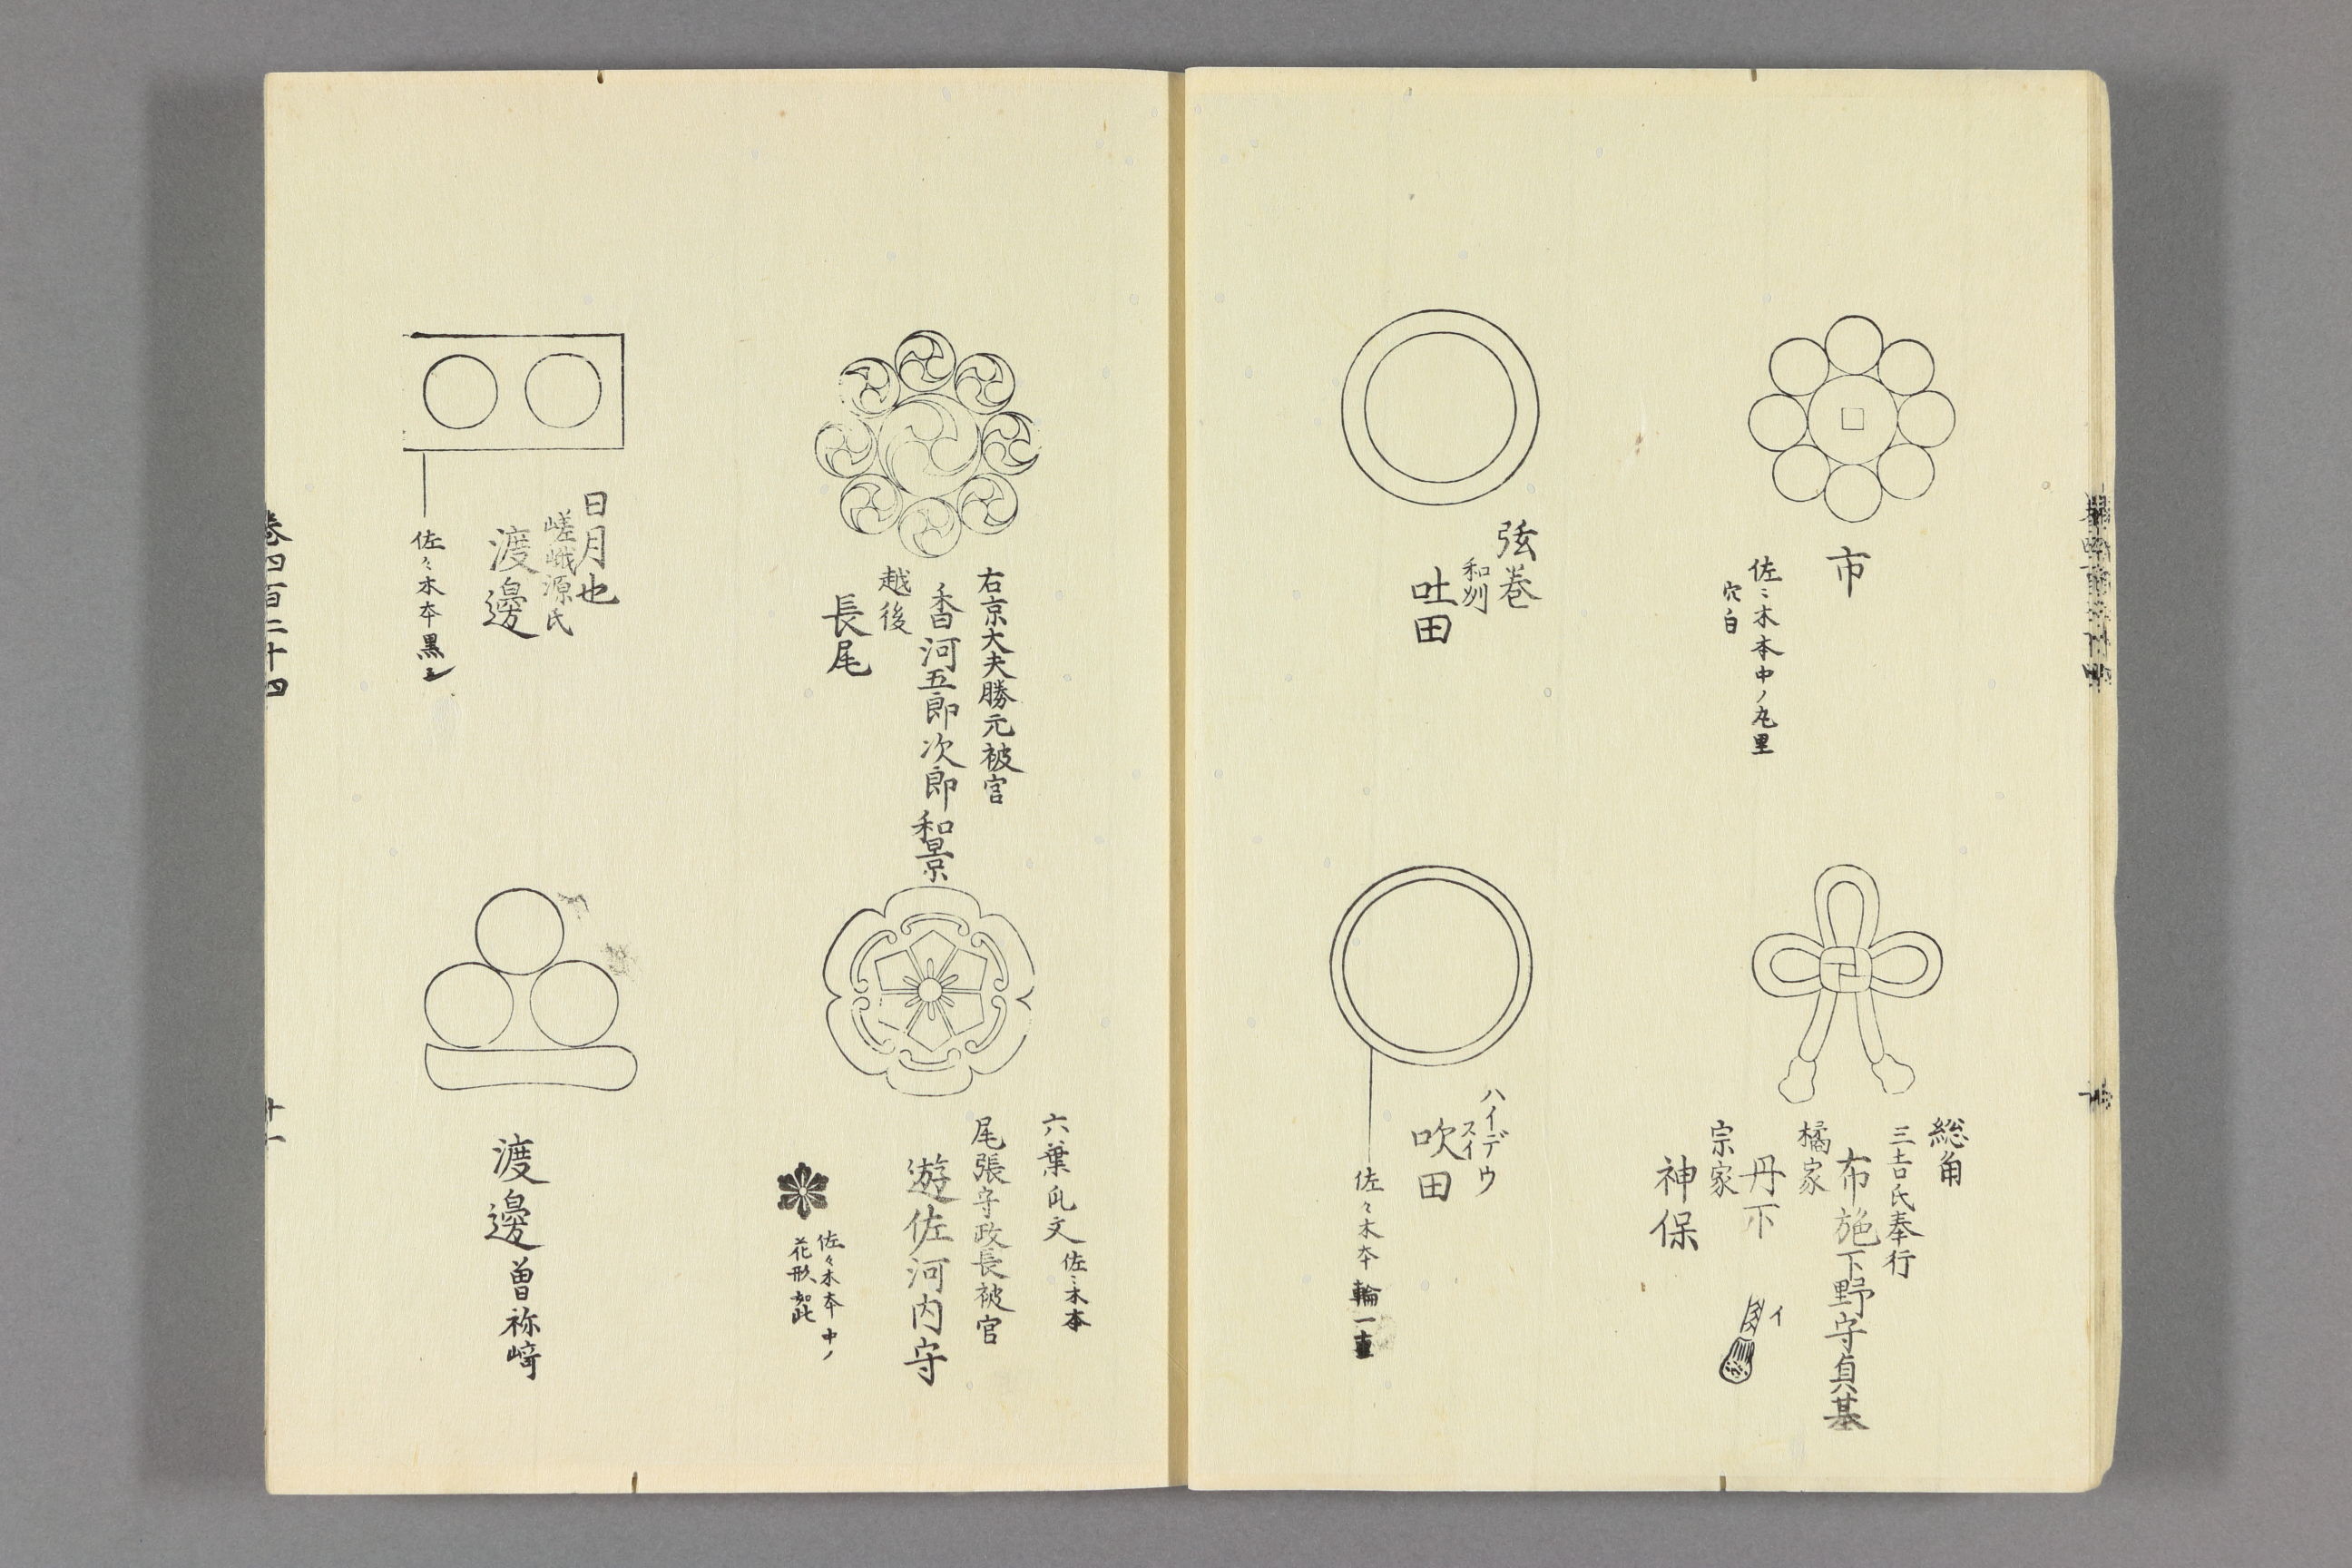 市
佐々木本中ノ丸黒
穴白
総角
三吉氏奉行
布施下野守貞基
橘家
丹下
宗家
神保
イ
弦巻
和州
吐田
ハイデウ
スイ
吹田
佐々木本輪一重
右京大夫勝元被官
香河五郎次郎和景
越後
長尾
六葉
文佐々木本
尾張守政長被官
遊佐河内守
佐々木本中ノ
花形如此
日月也
嵯峨源氏
渡邊
佐々木本黒シ
渡邊曽祢崎
巻四百二十四
十一